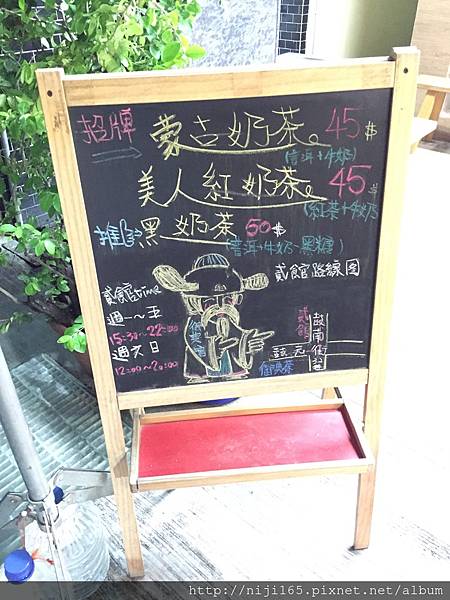 招牌 蒙古奶茶 45$
(普洱+牛奶)
美人紅奶茶 45$
(紅茶+牛奶)
推 黑奶茶 50$
(普洱+牛奶 黑糖)
貳館time
週一~五
15:30~22:00
週六日
12:00~20:00
貳館路線圖
貳館
http://niji165.pixnet.net/album